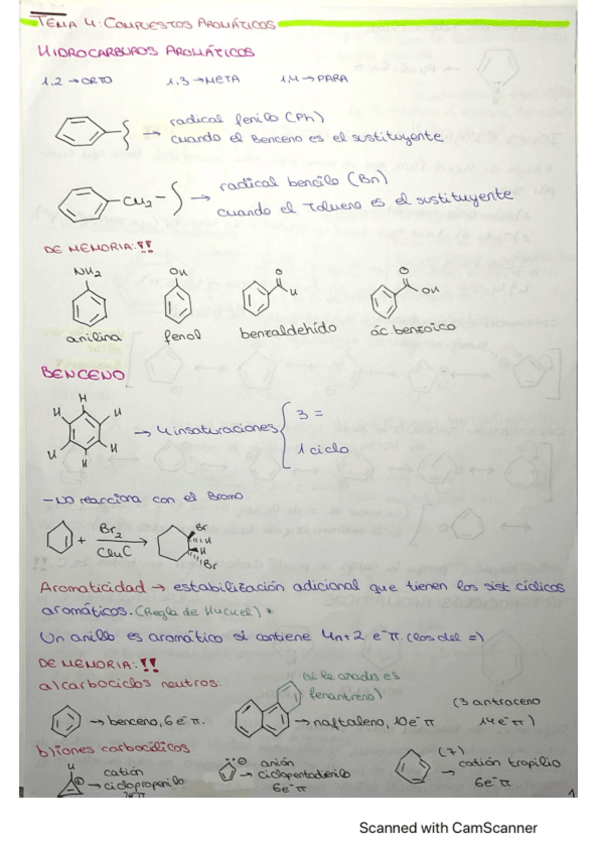 TEMA 4: COMPUESTOS AROMÁTICOS
HIDROCARBUROS AROMÁTICOS
1,2 → ORTO 1,3 → META 1,4 → PARA
→ radical fenilo (Ph)
cuando el Benceno es el sustituyente
CH2 - → radical bencilo (Bn)
cuando el Tolueno es el sustituyente
DE MEMORIA:!!
NH2 OH O H O OH
anilina fenol benzaldehído ác benzoico
BENCENO
H
H H
→ 4 insaturaciones 3 =
1 ciclo
H H
H
- NO reacciona con el Bromo.
+ Br2 Br H
Cl4C H Br
Aromaticidad → estabilización adicional que tienen los sist cíclicos
aromáticos. (Regla de Huckel) *
Un anillo es aromático si contiene 4n+2 e⁻π (los del =)
DE MEMORIA: !!
a) carbociclos neutros. (si le añades es
fenantreno)
→ benceno, 6e⁻π. → naftaleno, 10e⁻π (3 antraceno
14e⁻π)
b) iones carbocílicos
H ⊕ catión
→ ciclopropenilo
2e⁻π
⊖ anión
→ ciclopentadienilo
6e⁻π
(7)
→ catión tropilio
6e⁻π
1
Scanned with CamScanner